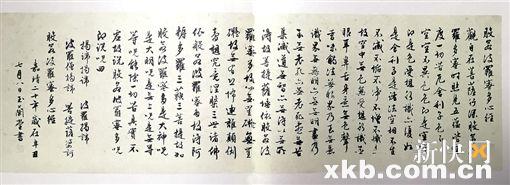 般若波羅蜜多心經
觀自在菩薩行深般若波
羅蜜多時照見五蘊皆空
度一切苦厄舍利子色不異
空空不異色色即是空空即
是色受想行識亦復如
是舍利子是諸法空相不生
不滅不垢不淨不增不減是
故空中無色無受想行識無
眼耳鼻舌身意無色聲
香味觸法無眼界乃至無意
識界無無明亦無無明盡乃
至無老死亦無老死盡無苦
集滅道無智亦無得以無所
得故菩提薩埵依般若波
羅蜜多故心無罣礙無罣
礙故無有恐怖遠離顛倒
夢想究竟涅槃三世諸佛
依般若波羅蜜多故得阿
耨多羅三藐三菩提故知
般若波羅蜜多是大神咒
是大明咒是無上咒是無等
等咒能除一切苦真實不
虛故說般若波羅蜜多咒
即說咒曰
揭諦揭諦 波羅揭諦
波羅僧揭諦 菩提薩婆訶
般若波羅蜜多心經
嘉靖二十年歲在辛丑
七月八日玉蘭堂書
新快网
xkb.com.cn